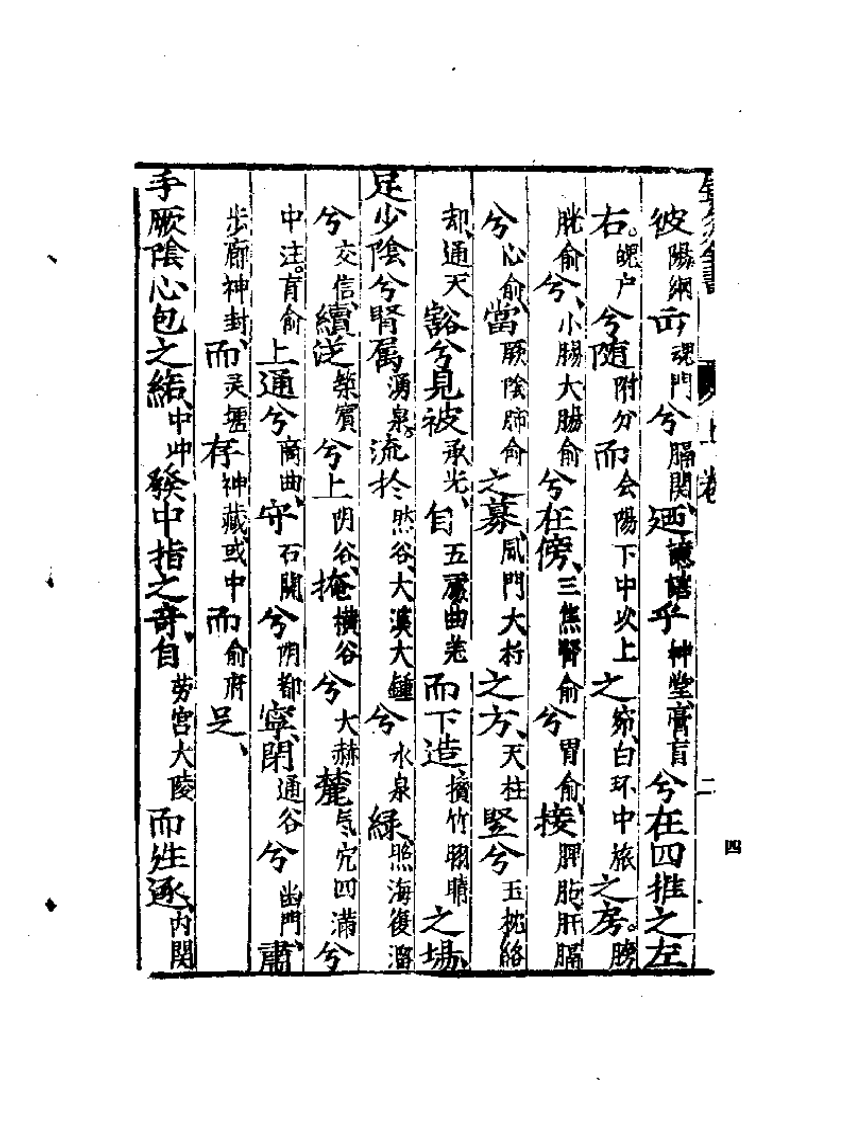 上卷
二
四
彼陽綱而魂門兮膈関廼譩譆乎神堂膏肓兮在四推之左
右魄户兮随附分而会陽下中次上之窌白环中旅之房膀
胱俞兮小腸大腸俞兮在傍三焦腎俞兮胃俞接脾胆肝膈
兮心俞當厥陰肺俞之募風門大杼之方天柱竪兮玉枕絡
却通天豁兮見彼承光自五處曲差而下造攅竹睛之場
足少陰兮腎属湧泉流於然谷大溪大鍾兮水泉緑照海復溜
兮交信續従築賓兮上阴谷掩横谷兮大赫麓气穴四滿兮
中注肓俞上通兮商曲守石関兮阴都寧閉通谷兮幽門肅
步廊神封而灵墟存神藏或中而俞府足
手厥陰心包之絡中冲發中指之竒自劳宫大陵而逐内関